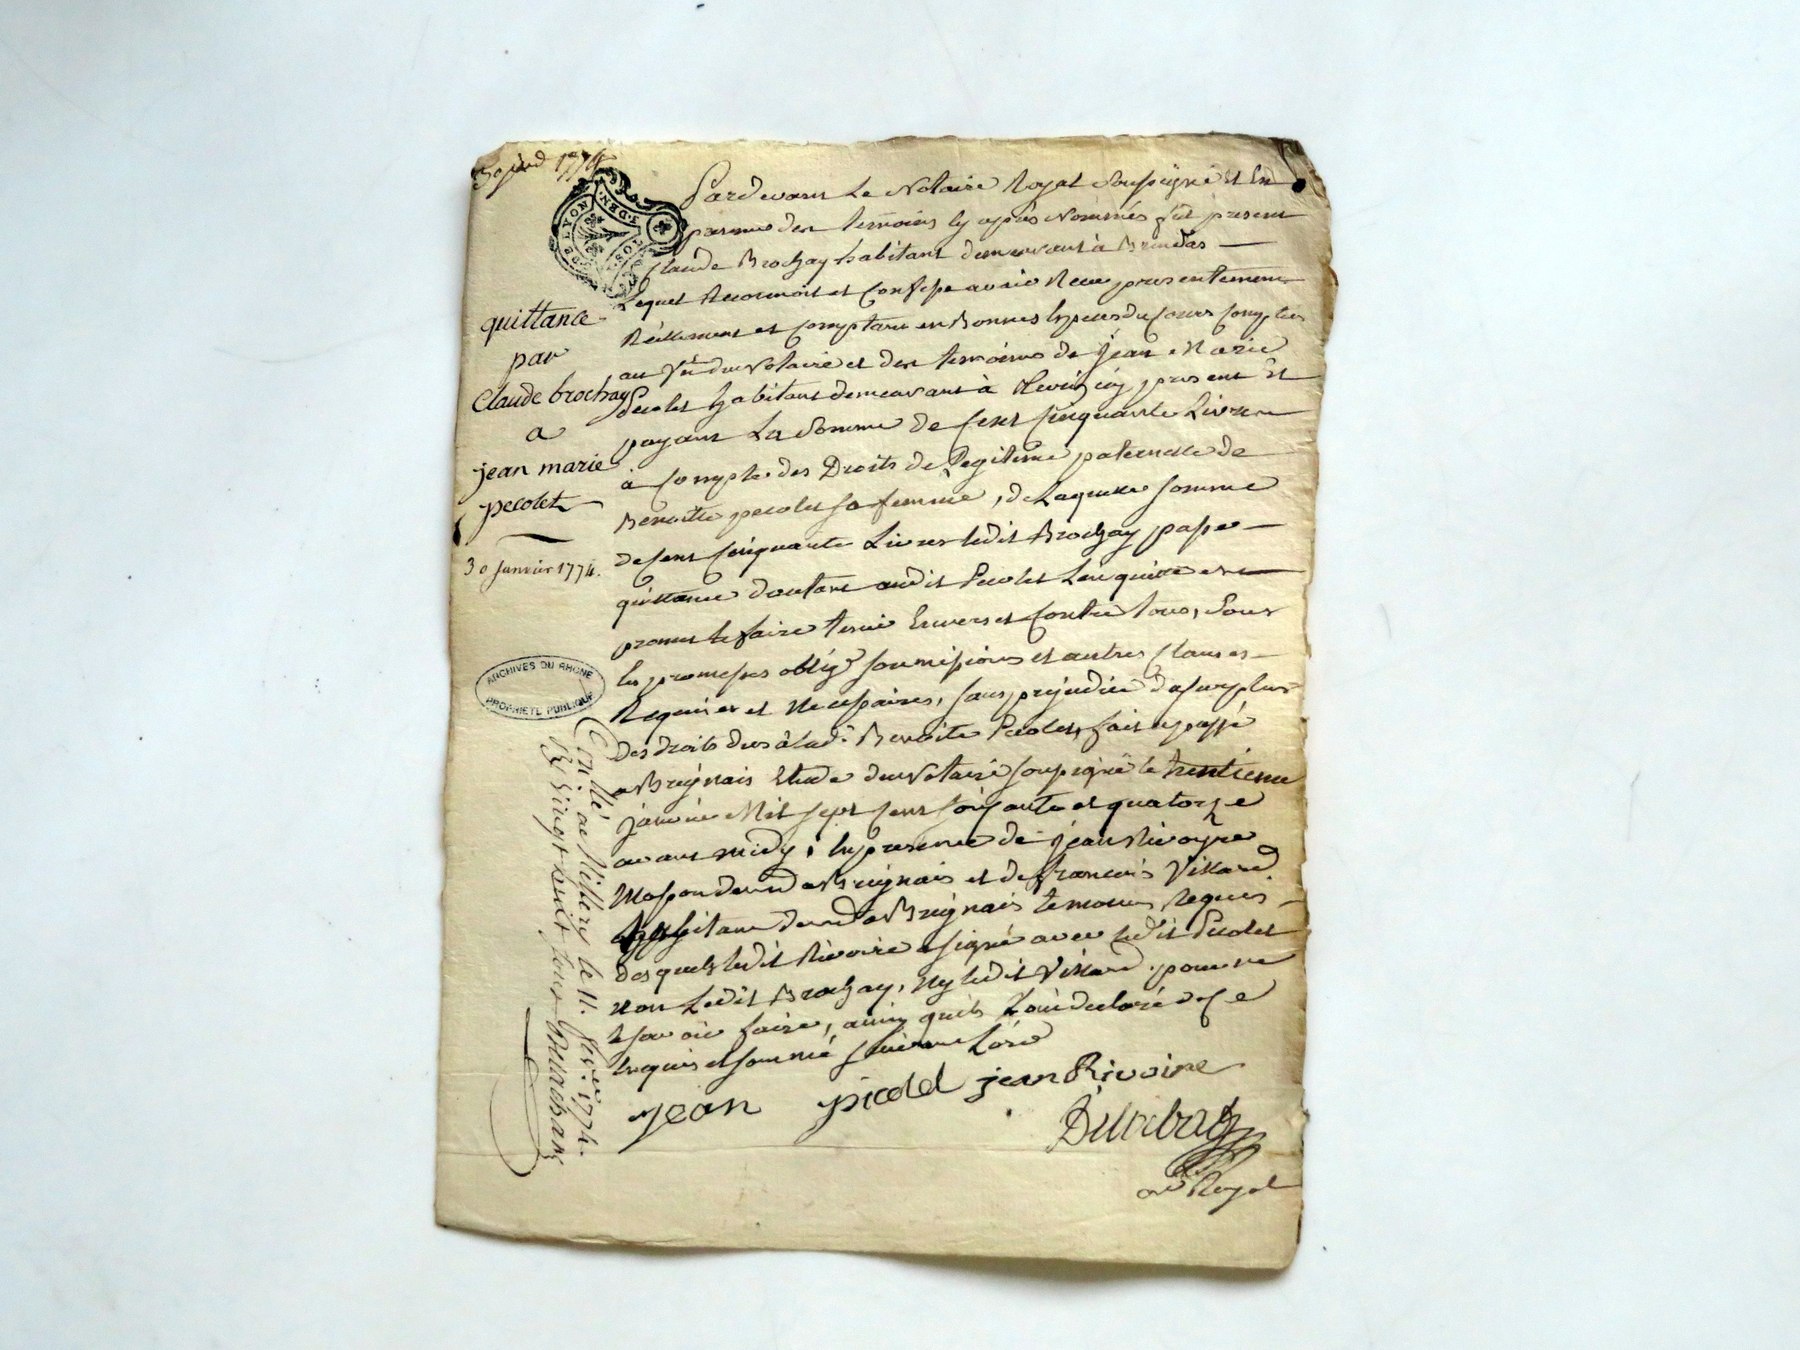 30 janv 1774
GEN. DE LYON
DEN.
quittance
par
Claude brochay
a
jean marie
pecolet
30 janvier 1774.
ARCHIVES DU RHONE
PROPRIÉTÉ PUBLIQUE
Pardevant Le Notaire Royal Soussigné et En
presence des temoins cy après Nommés fut present
Claude Brochay habitant demeurant à Brindas
Lequel Reconnoit et Confesse avoir Receu presentement
Réellement et Comptant en Bonnes Especes du Cours Comptées
au Vû du Notaire et des temoins de jean Marie
Pecolet habitant demeurant à present et
payant La Somme de Cent Cinquante Livres
à Compte des Droits de Legitime paternelle de
Benoitte pecolet sa femme, de Laquelle somme
de Cent Cinquante Livres ledit Brochay passe
quittance d'autant audit Pecolet L'en quitte et
promet le faire tenir Envers et Contre tous, Sous
les promesses oblig.s soumissions et autres Clauses
Requises et Necessaires, sans prejudice du surplus
des droits dus à lad.e Benoite Pecolet, fait et passé
a Brignais Etude du Notaire soussigné le trentieme
janvier Mil sept cent soixante et quatorze
avant midy, En presence de jean Rivoyre
Masson demt a Brignais et de francois Villard
habitant demt a Brignais temoins Requis
desquels ledit Rivoire a signé avec ledit Pecolet
non Ledit Brochay, Ny ledit Villard pour ne
le savoir faire, ainsi quils L'ont declaré de ce
Enquis et sommé suivant L'ord
jean picolel jean Rivoire
Nre Royal
C.llé a Millery le 11. fev.er 1774.
R. Vingt huit sols